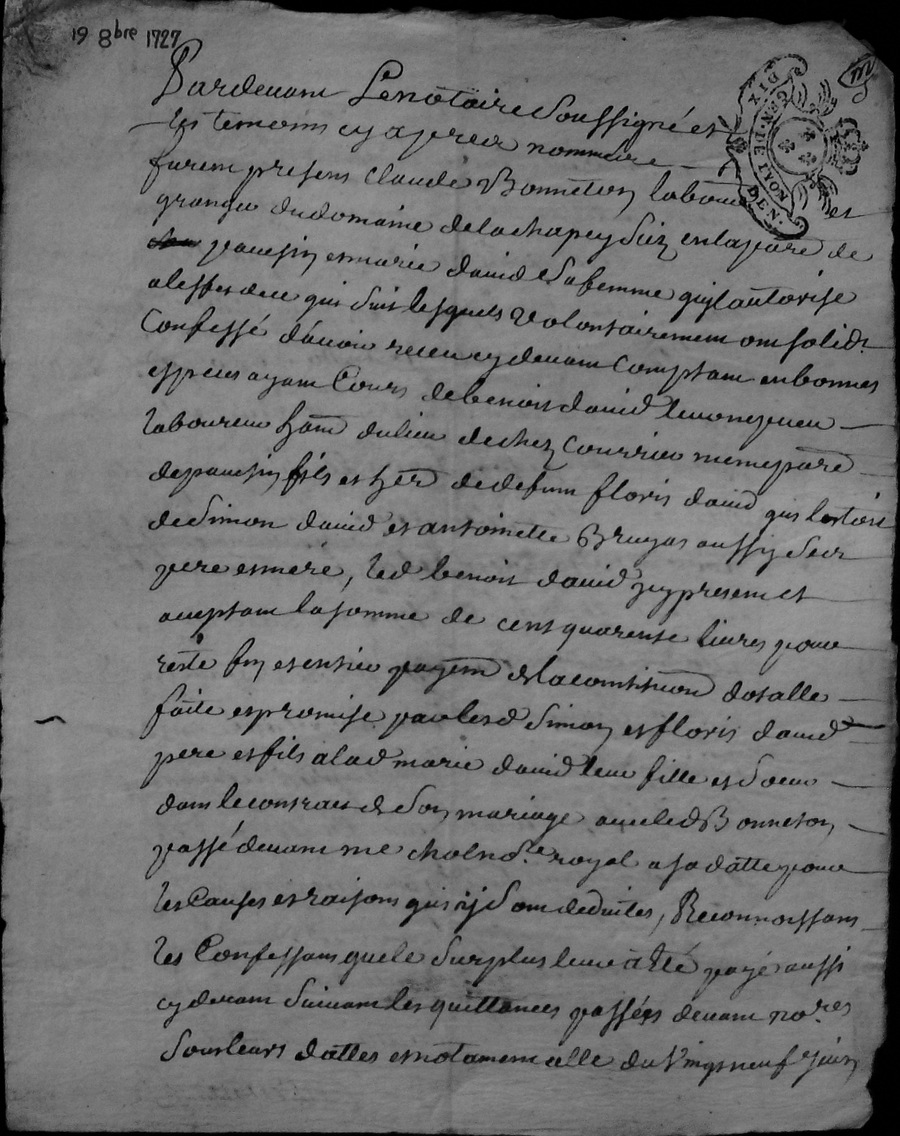 19 8bre 1727
GEN. DE LYON
DIX
DEN.
Pardevant Le notaire soussigné et
les temoins cy apres nommére
furent presens claude Bonneton laboureur et
granger du domaine de la chapey sciz en la parre de
et marie david sa femme quil autorise
a leffet de ce qui suit lesquels volontairement ont solidt
Confessé davoir receu cy devant comptant en bonnes
especes ayant Cours de benoit david
laboureur hant du lieu de chez courrieu meme parre
fils et her de defunt floris david qui lestoit
de Simon david et antoinette Bruyas aussy ses
pere et mere, led benoit david jcy present et
aceptant la somme de cent quarente livres pour
reste fin et entier payemt de la constitution dotalle
faite et promise par lesd Simon et floris david
pere et fils a lad marie david leur fille et soeur
dans le contrat de son mariage avec led Bonneton
passé devant me nore royal a sa datte pour
les Causes et raisons qui y sont deduites, Reconnoissans
les Confessans que le surplus leur a été payé aussi
cy devant suivant les quittances passées devant nores
sous leurs dattes et notament celle du vingt neuf juin